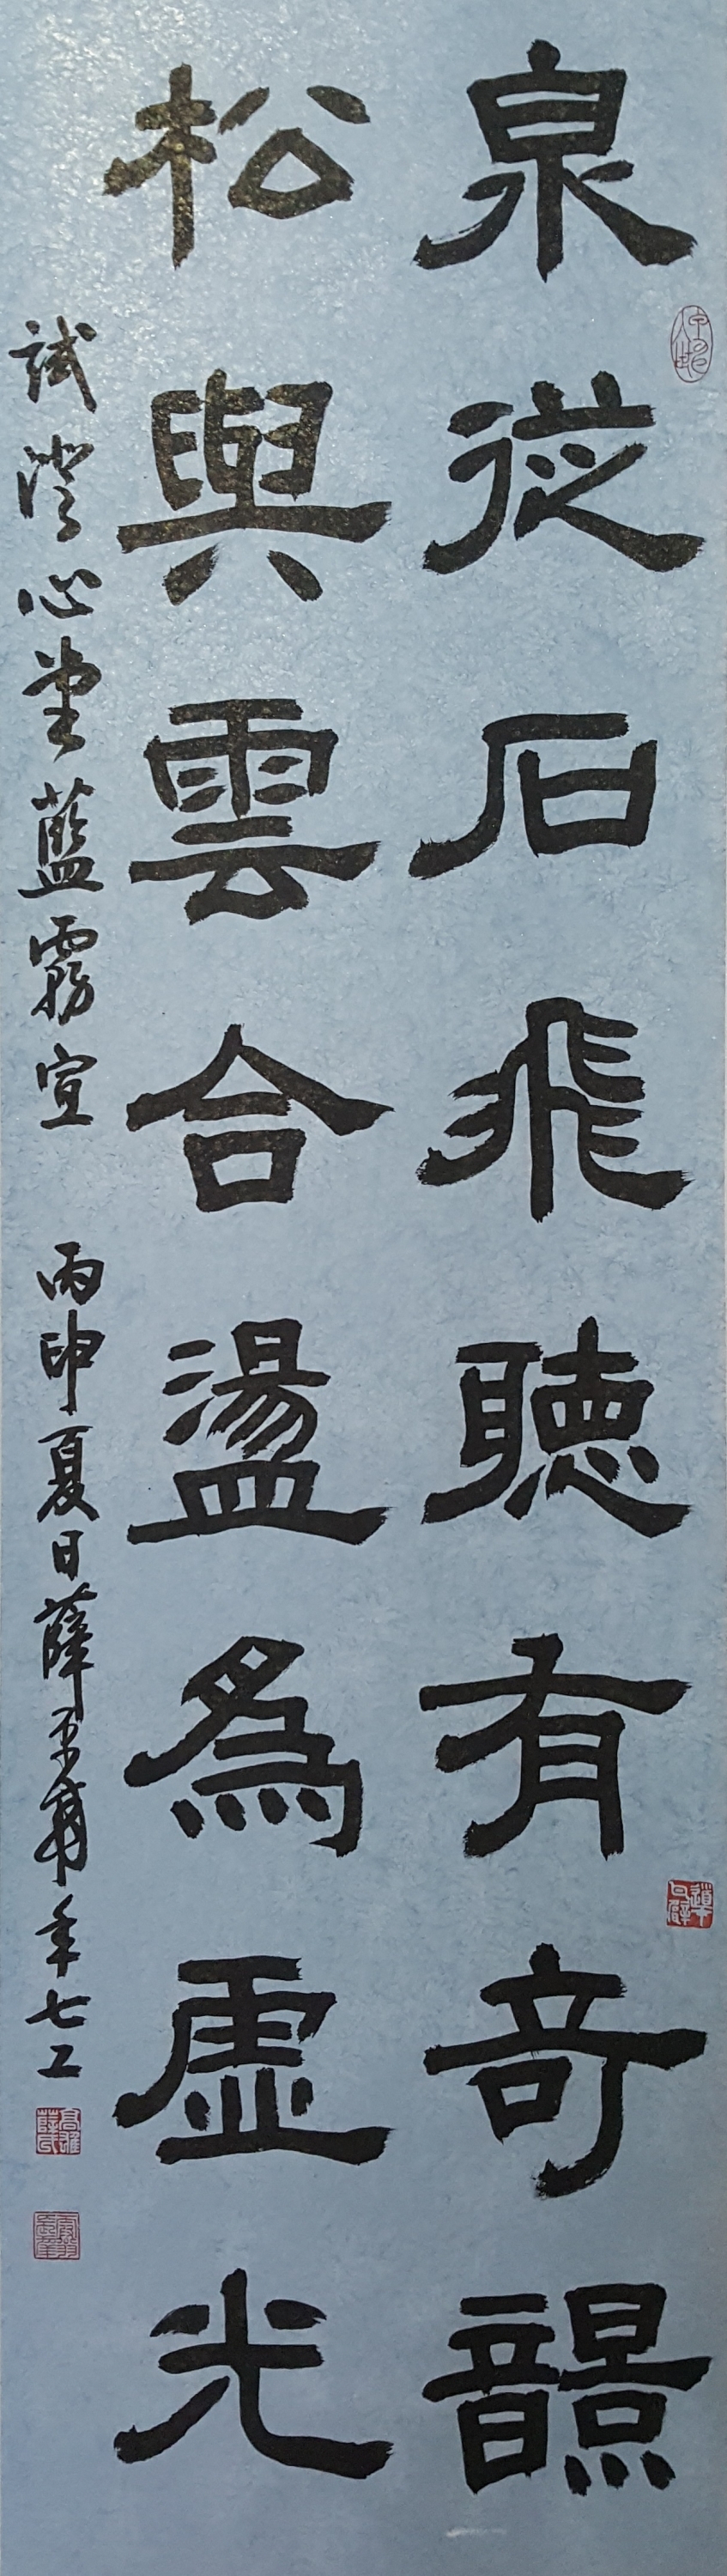 泉從石飛聽有奇韻
松與雲合盪為虛光
試澄心堂藍霧宣 丙申夏日薛平南年七二